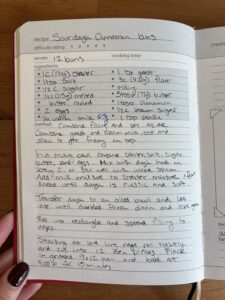 recipe Sourdough Cinnamon buns
difficulty rating: 1 2 3 4 5
serves: 12 buns
cooking time:
ingredients:
• 1c starter
• 1 tsp yeast
• 1 tsp salt
• 3c flour
• 1/2 c sugar
filling
melted
• 5 tbsp butter
butter cooled
• 1 tbsp cinnamon
• 2 eggs
sugar
warm milk
• 1 tsp vanilla
method: Combine flour and set aside.
Combine yeast and warm milk and
allow to get foamy on top
In a mixing bowl combine starter, salt, sugar
butter and eggs. Mix with dough hook on
setting 2 or stir well with wooden spoon.
Add milk mixture to starter mixture + flour
Knead until dough is elastic and soft.
Transfer dough to an oiled bowl and let
rise until doubled. Punch down and
Roll into rectangle and spread filling to
edges.
Starting at the long edge roll tightly
and cut into 12 pieces. Place
in greased 9x12 pan and bake at
for minutes.